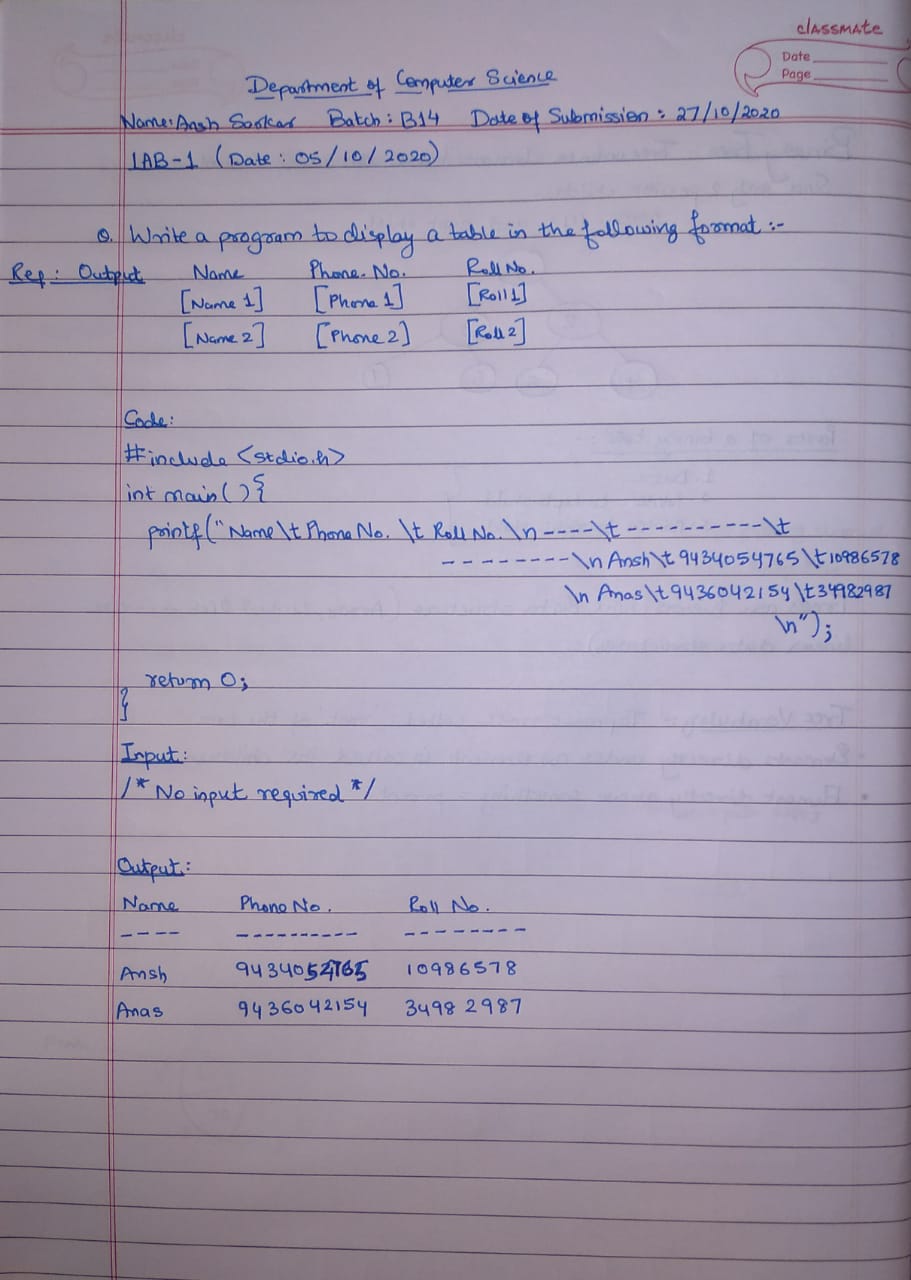 classmate
Date
Page
Department of Computer Science
Name: Ansh Sarkar Batch: B14 Date of Submission: 27/10/2020
LAB-1 (Date: 05/10/2020)
Q. Write a program to display a table in the following format :-
Req: Output Name Phone. No. Roll No.
[Name 1] [Phone 1] [Roll 1]
[Name 2] [Phone 2] [Roll 2]
Code:
#include <stdio.h>
int main(){
printf("Name\t Phone No. \t Roll No. \n ----\t ----------\t
--------\n Ansh\t 9434054765 \t10986578
\n Anas\t9436042154\t34982987
\n");
return 0;
}
Input:
/* No input required */
Output:
Name Phone No. Roll No.
---- ---------- --------
Ansh 9434054765 10986578
Anas 9436042154 34982987